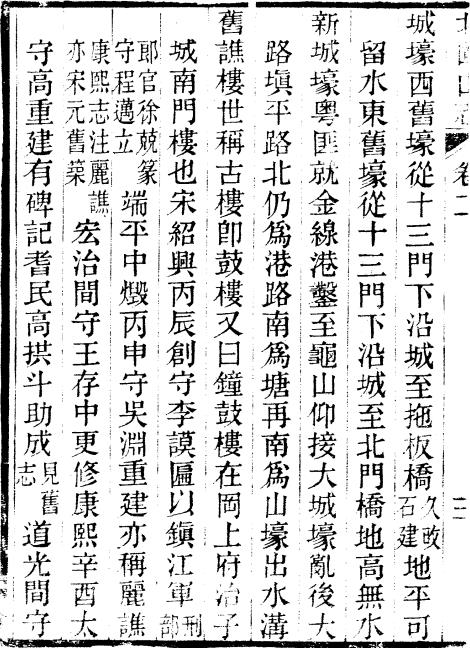 卷二
城壕西舊壕從十三門下沿城至拖板橋久改石建地平可
留水東舊壕從十三門下沿城至北門橋地高無水
新城壕粵匪就金線港鑿至龜山仰接大城壕亂後大
路塡平路北仍爲港路南爲塘再南爲山壕出水溝
舊譙樓世稱古樓卽鼓樓又曰鐘鼓樓在岡上府治子
城南門樓也宋紹興丙辰創守李謨匾以鎮江軍刑部
郎官徐兢篆守程邁立端平中燬丙申守吳淵重建亦稱麗譙
康熙志注麗譙亦宋元舊築宏治間守王存中更修康熙辛酉太
守高重建有碑記耆民高拱斗助成見舊志道光間守